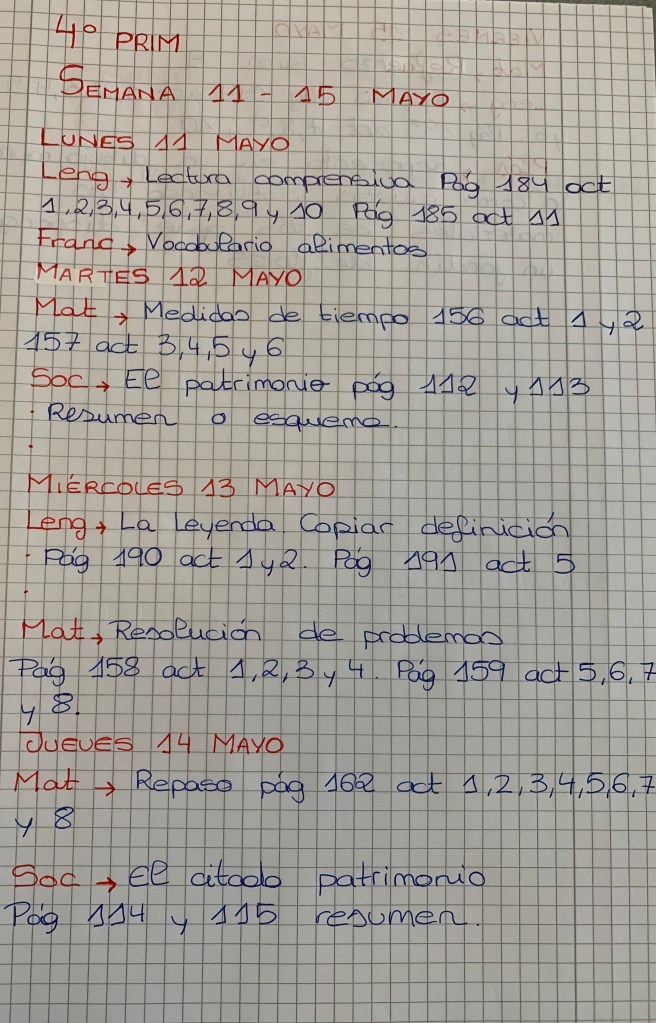 4º PRIM
SEMANA 11 - 15 MAYO
LUNES 11 MAYO
Leng → Lectura comprensiva Pág 184 act
1,2,3,4,5,6,7,8,9 y 10 Pág 185 act 11
Franc → Vocabulario alimentos
MARTES 12 MAYO
Mat → Medidas de tiempo 156 act 1 y 2
157 act 3,4,5 y 6
Soc → El patrimonio pág 112 y 113
· Resumen o esquema.
MIÉRCOLES 13 MAYO
Leng → La leyenda. Copiar definición
· Pág 190 act 1 y 2. Pág 191 act 5
Mat → Resolución de problemas
Pág 158 act 1,2,3 y 4. Pág 159 act 5,6,7
y 8.
JUEVES 14 MAYO
Mat → Repaso pág 162 act 1,2,3,4,5,6,7
y 8
Soc → El citado patrimonio
Pág 114 y 115 resumen.